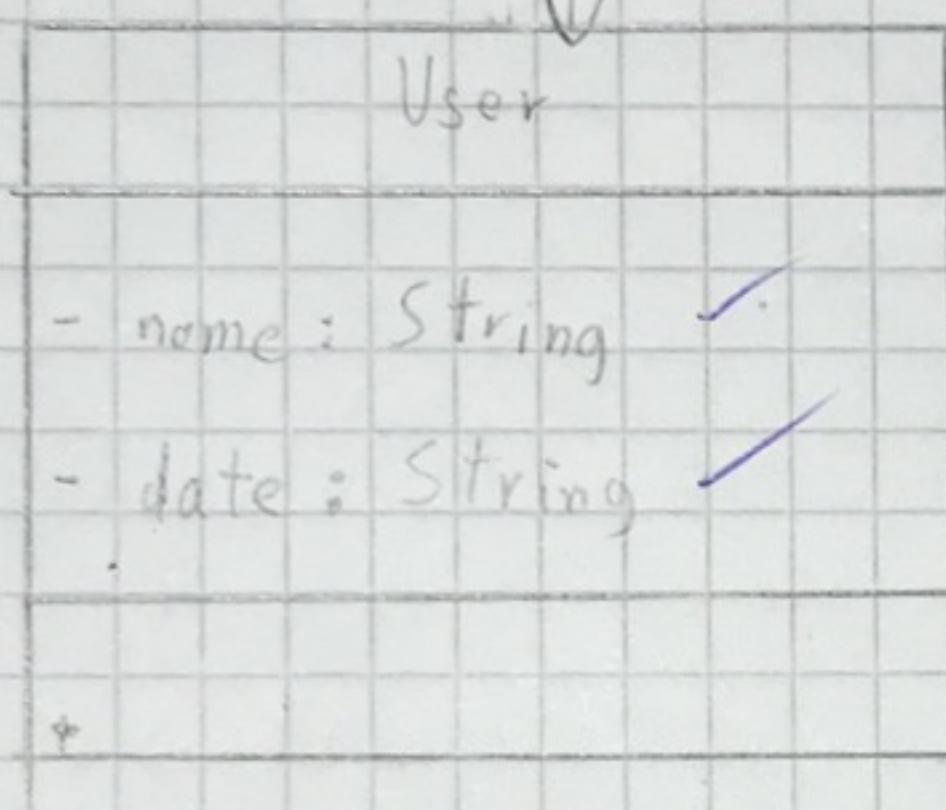 User
- name : String
- date : String
+